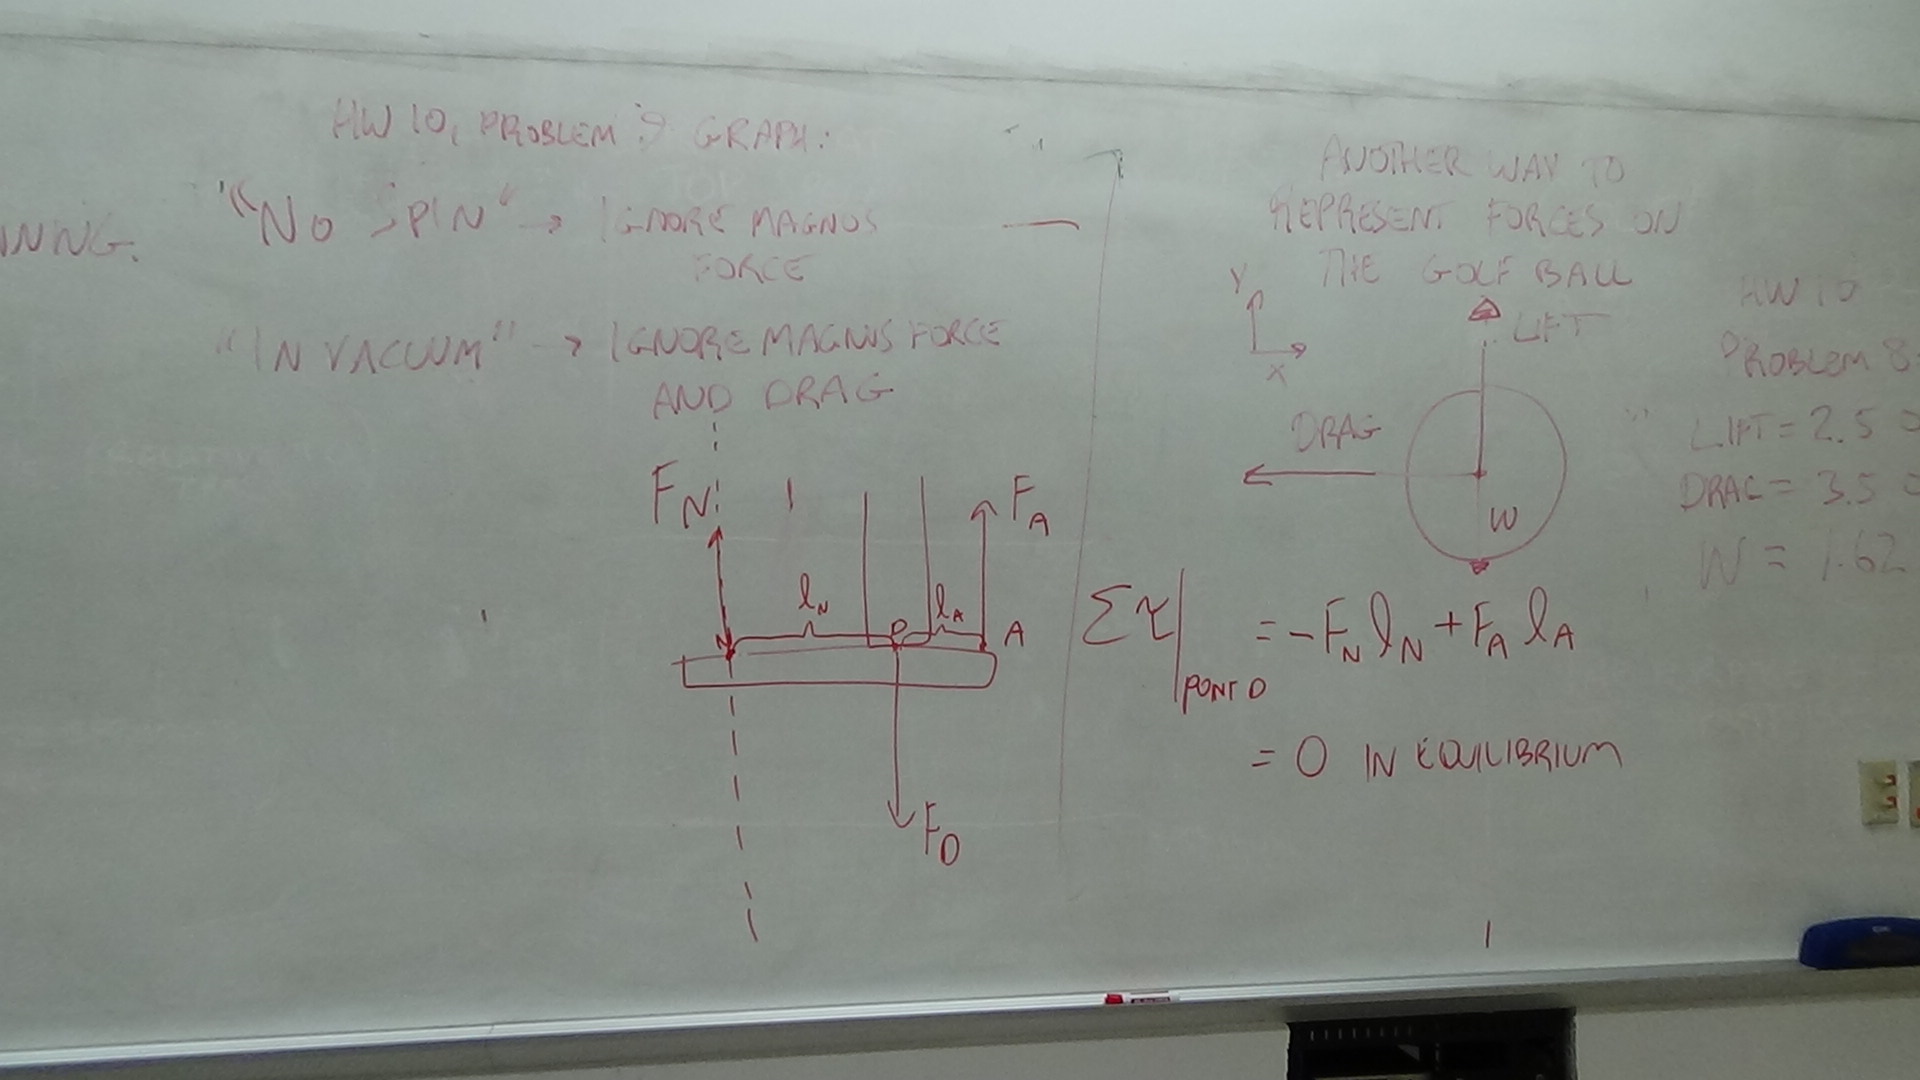 HW 10, PROBLEM 9 GRAPH:
"NO SPIN" → IGNORE MAGNUS
FORCE
"IN VACUUM" → IGNORE MAGNUS FORCE
AND DRAG
NNG.
F_N
F_A
l_N
l_A
N
A
F_D
ANOTHER WAY TO
REPRESENT FORCES ON
THE GOLF BALL
Y
X
LIFT
DRAG
W
HW 10
PROBLEM 8
LIFT = 2.5
DRAG = 3.5
W = 1.62
Στ|POINT D = -F_N l_N + F_A l_A
= 0 IN EQUILIBRIUM